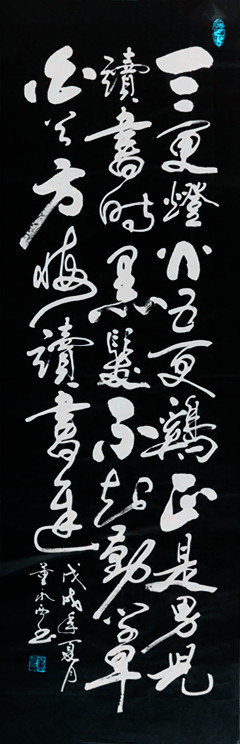 三更燈火五更鷄正是男兒
讀書時黑髮不知勤學早
白首方悔讀書遲
戊戌年夏月
董 书